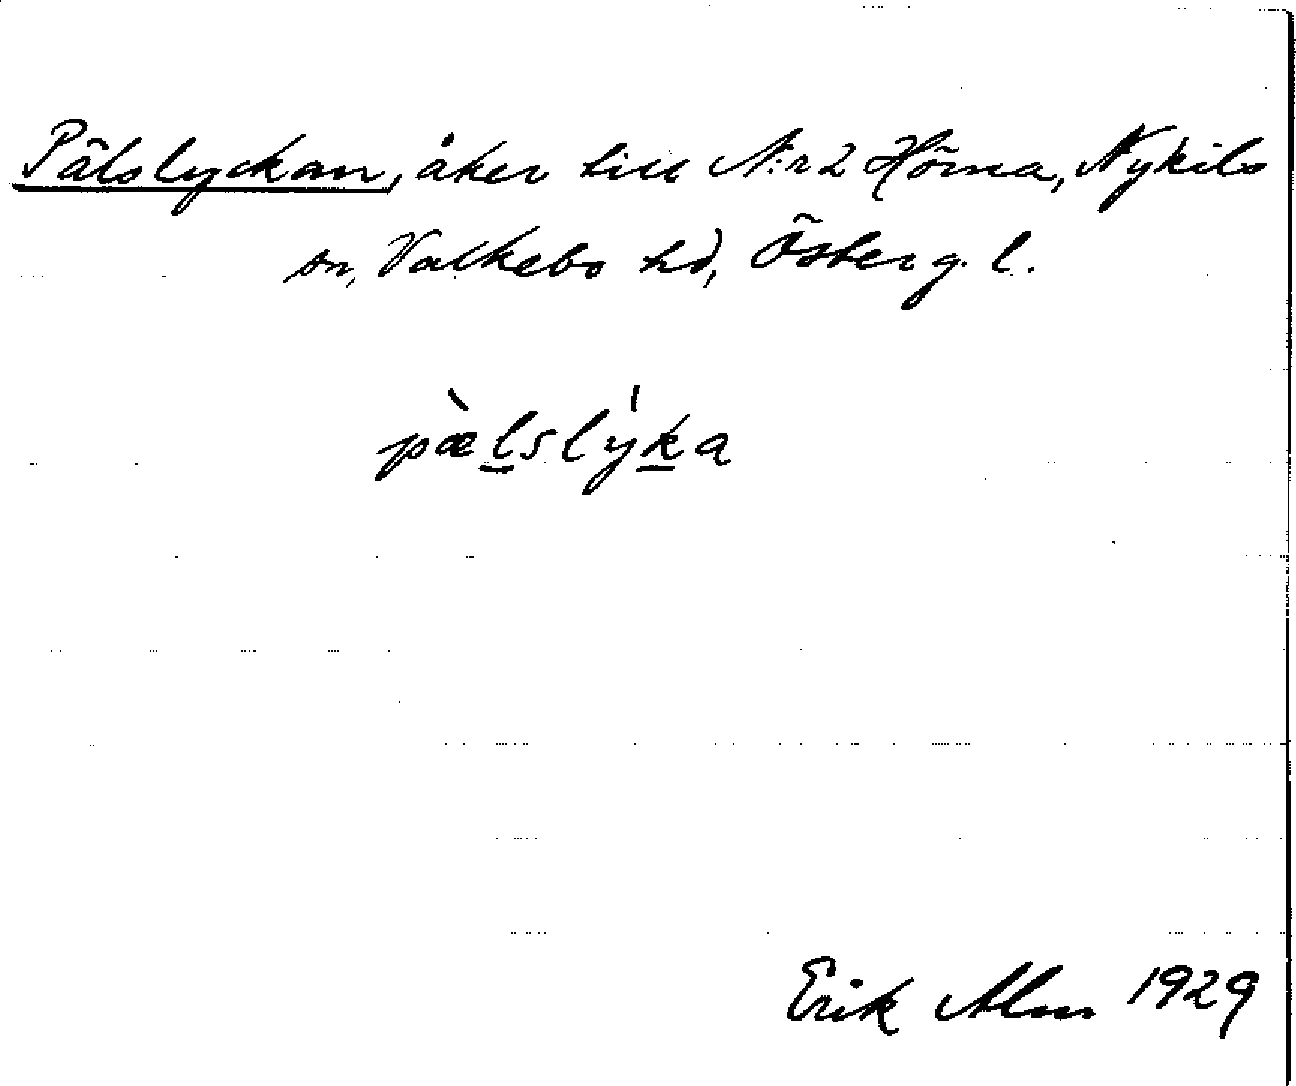 Pälslyckan, åker till N:r 2 Hörna, Nykils
sn, Valkebo hd, Österg. l.
pæ̀lslýka
Erik Alm 1929